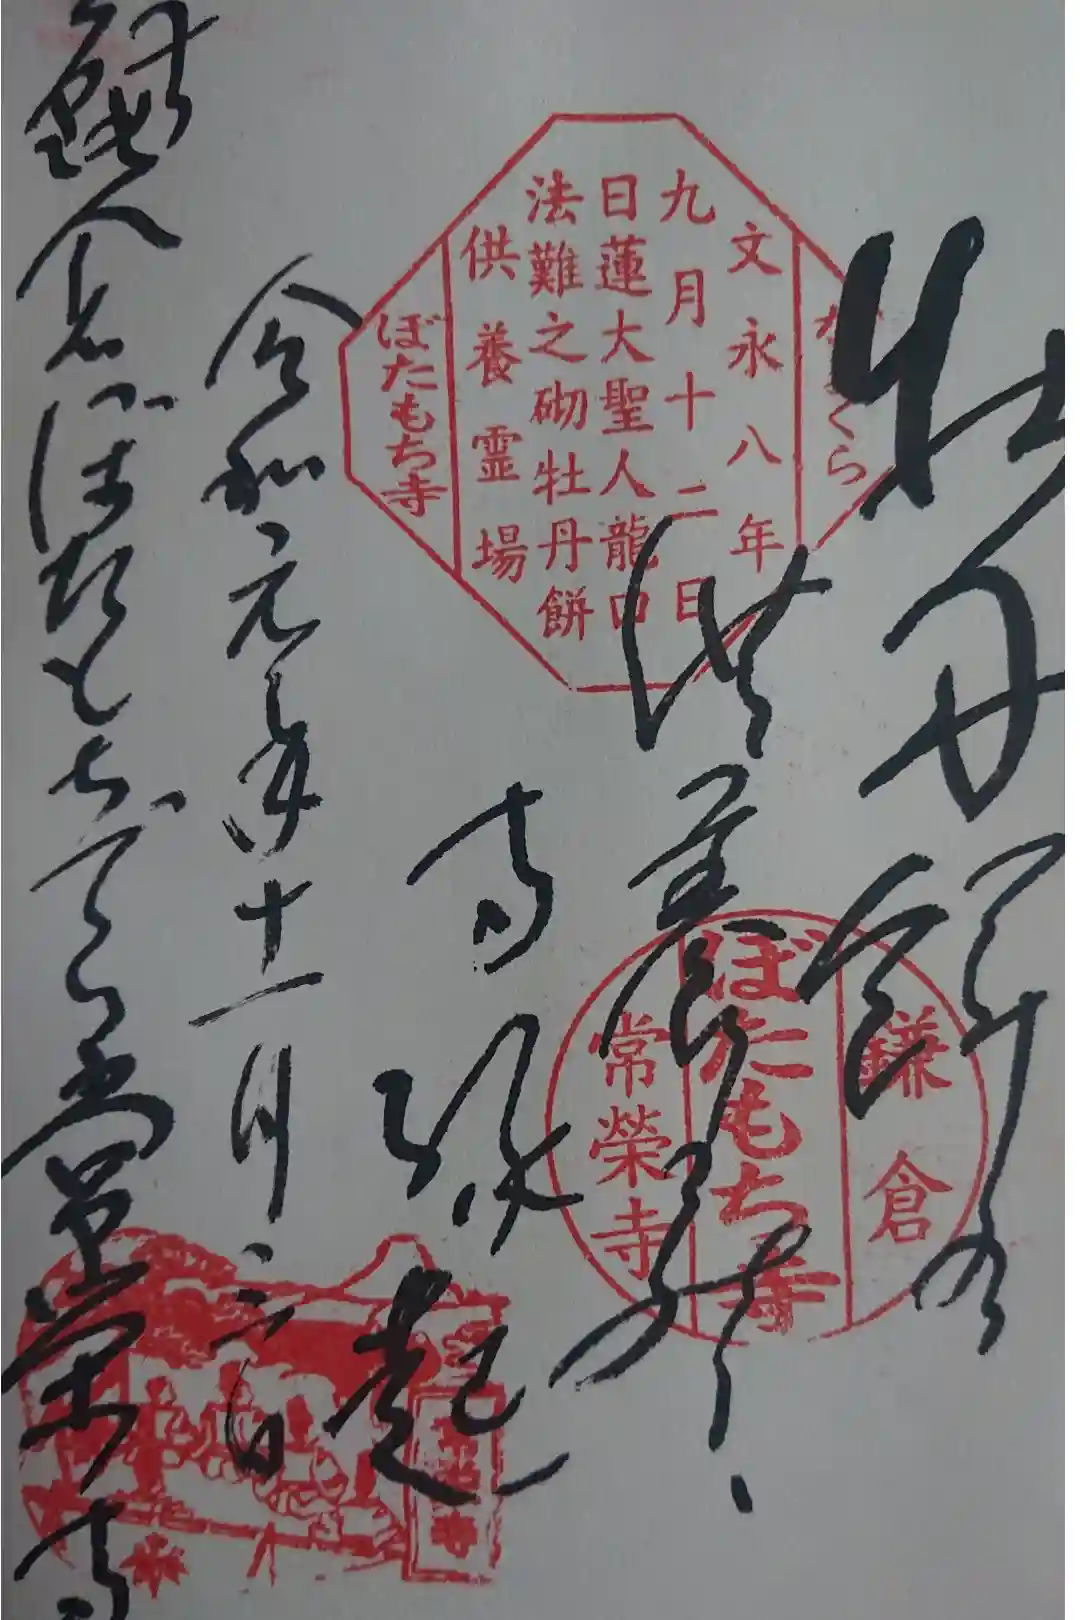 牡丹餅の
供養
寺縁起
令和元年十一月二日
鎌倉ぼたもち寺常栄寺
かまくら
文永八年
九月十二日
日蓮大聖人龍口
法難之砌牡丹餅
供養霊場
ぼたもち寺
鎌倉
ぼたもち寺
常榮寺